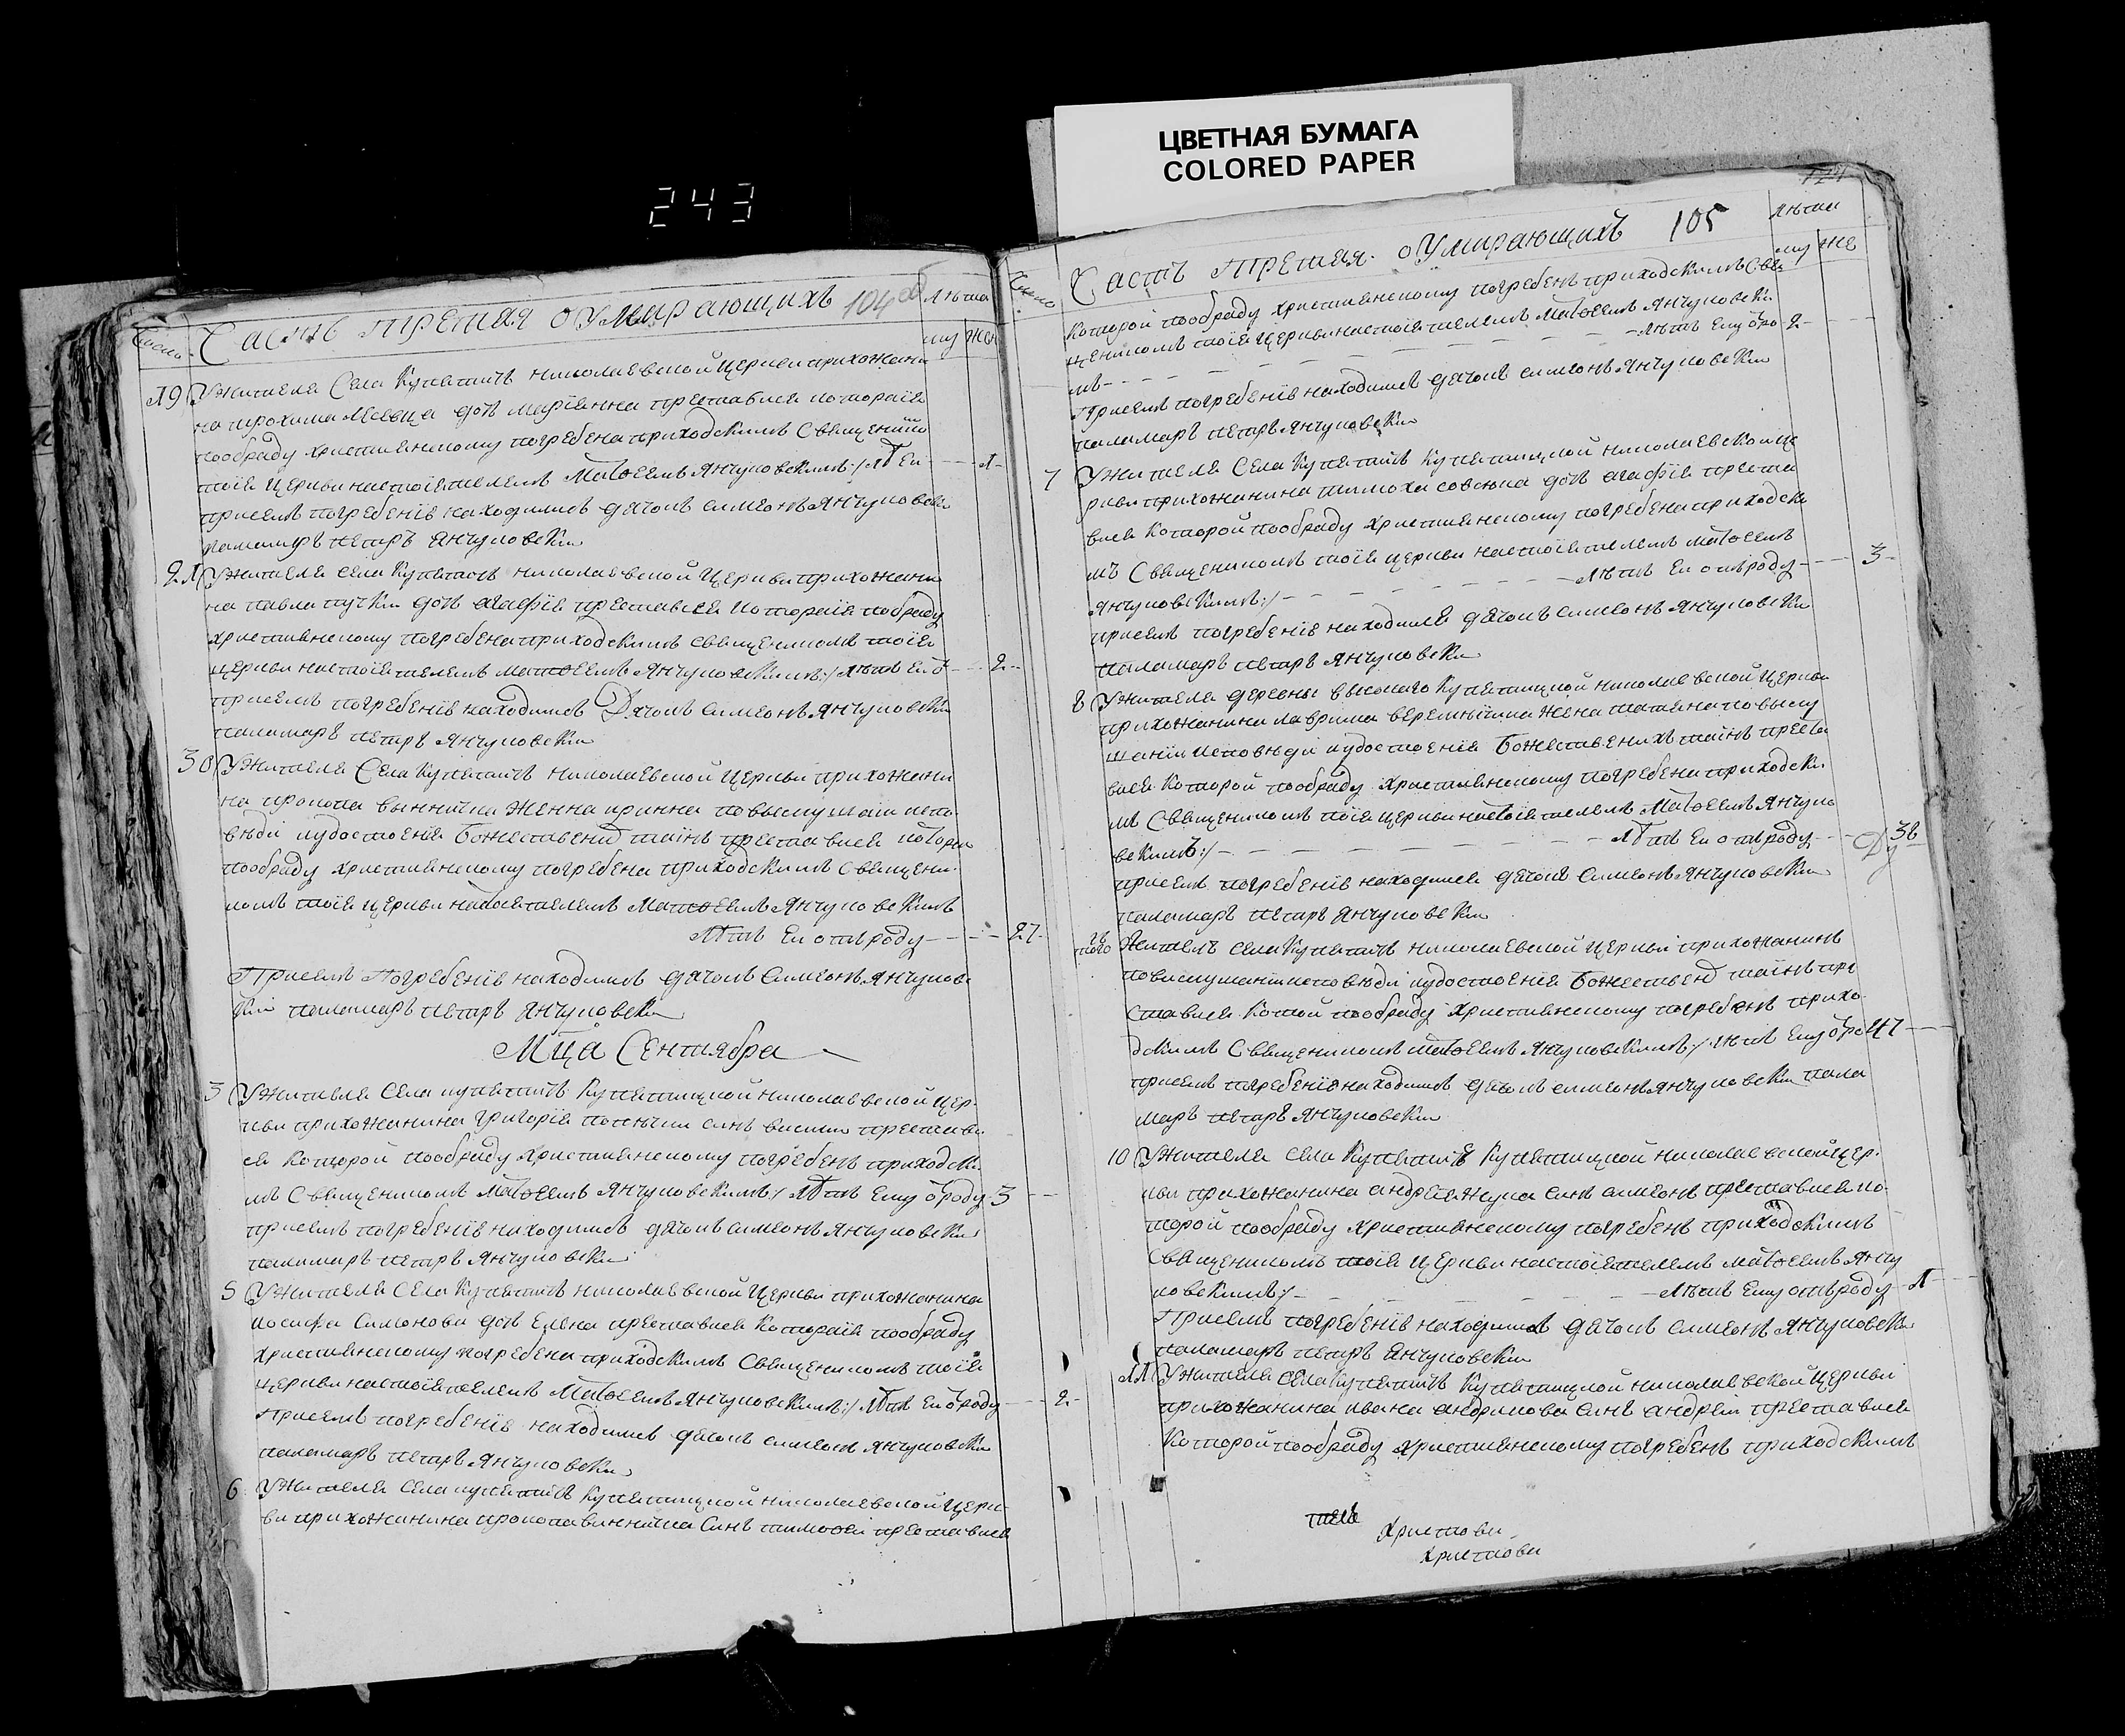 ЦВЕТНАЯ БУМАГА
COLORED PAPER
243
Часть третая о Умирающихъ 104 об
Лѣта
Число
му же
19 У Жителя Села Купятичъ николаевской Церкви прихожани
на дочь мариянна преставися которая
пообряду християнскому погребена приходскимъ Священик
тоїя Церкви настоіятелемъ Матѳеемъ Янчуковскимъ:/ лѣт Ей 1
присемъ погребеніе находилися дячокъ симеонъ Янчуковски
паламаръ петръ Янчуковски
21 У Жителя села Купятичъ николаевской Церкви прихожани
на павла дочь агафїя преставися которая пообряду
християнскому погребена приходскимъ священикомъ тоїя
церкви настоіятелемъ матѳеемъ Янчуковскимъ:/ лѣтъ Ей о 2
присемъ погребеніе находился Дячокъ симеонъ Янчуковски
паламаръ петръ Янчуковски
30 У Жителя Села Купятичъ николаевской Церкви прихожани
на прокопа жена повыслушаніи испо
вѣди иудостоенія Божественъ таинъ преставися котора
пообряду християнскому погребена приходскимъ священи
комъ тоїя церкви настоятелемъ Матѳеемъ Янчуковскимъ
Лѣтъ Ей отъроду 27
Присемъ Погребеніе находился дячокъ Симеонъ Янчуков
ски паламаръ петръ Янчуковски
Мца Сентября
3 У Жителя Села купятичъ Купятицкой николаевской Цер
кви прихожанина григорія синъ василии престави
ся которой пообряду християнскому погребенъ приходски
мъ Священикомъ Матѳеемъ Янчуковскимъ:/ лѣтъ Ему ѿроду 3
присемъ погребеніе находился дячокъ симеонъ Янчуковски
паламаръ петръ Янчуковски
5 У Жителя Села Купятичъ николаевской Церкви прихожанина
иосифа Симонова дочь Елена преставися которая пообряду
християнскому погребена приходскимъ Священикомъ тоїя
церкви настоіятелемъ Матѳеемъ Янчуковскимъ:/ лѣтъ Ей ѿроду 2
Присемъ погребеніе находился дячокъ симеонъ Янчуковски
паламаръ петръ Янчуковски
6 У Жителя Села купятичъ Купятицкой николаевской Церк
ви прихожанина прокопа синъ тимоѳеи преставися
Часть третая о Умирающихъ 105
Лѣта
Число
му же
которой пообряду християнскому погребенъ приходскимъ Свя
щеникомъ тоїя Церкви настоіятелемъ Матѳеемъ Янчуковски
мъ лѣтъ Ему ѿро 2
Присемъ погребеніе находился дячокъ симеонъ Янчуковски
паламаръ петръ Янчуковски
7 У Жителя Села Купятичъ Купятицкой николаевской це
ркви прихожанина тимоха дочь агафїя преста
вися которой пообряду християнскому погребена приходски
мъ Священикомъ тоїя церкви настоіятелемъ матѳеемъ
Янчуковскимъ:/ Лѣтъ Ей отъроду 3
присемъ погребеніе находился дячокъ симеонъ Янчуковски
паламаръ петръ Янчуковски
8 У Жителя деревны высокаго Купятицкой николаевской Церкви
прихожанина жена татияна повыслу
шаніи исповѣди иудостоенія Божественихъ таинъ преста
вися которой пообряду християнскому погребена приходски
мъ Священикомъ тоїя церкви настоіятелемъ Матѳеемъ Янчуко
вскимъ:/ Лѣтъ Ей отъроду 36
присемъ погребеніе находился дячокъ симеонъ Янчуковски
паламаръ петръ Янчуковски
Житель села Купятичъ николаевской Церкви прихожанинъ
повислушаніи исповѣди иудостоенія Божественъ таинъ пре
ставися Которой пообряду християнскому погребенъ прихо
дскимъ Священикомъ матѳеемъ Янчуковскимъ:/ лѣтъ Ему ѿро 47
присемъ погребеніе находился дячокъ симеонъ Янчуковски пала
маръ петръ Янчуковски
10 У Жителя села Купятичъ Купятицкой николаевской цер
кви прихожанина андрея синъ симеонъ преставися ко
торой пообряду християнскому погребенъ приходскимъ
Священикомъ тоїя церкви настоіятелемъ матѳеемъ Янчу
ковскимъ:/ Лѣтъ Ему отъроду 1
Присемъ погребеніе находился дячокъ симеонъ Янчуковски
паламаръ петръ Янчуковски
11 У Жителя села Купятичъ Купятицкой николаевской Церкви
прихожанина ивана синъ андреи преставися
Которой пообряду християнскому погребенъ приходскимъ